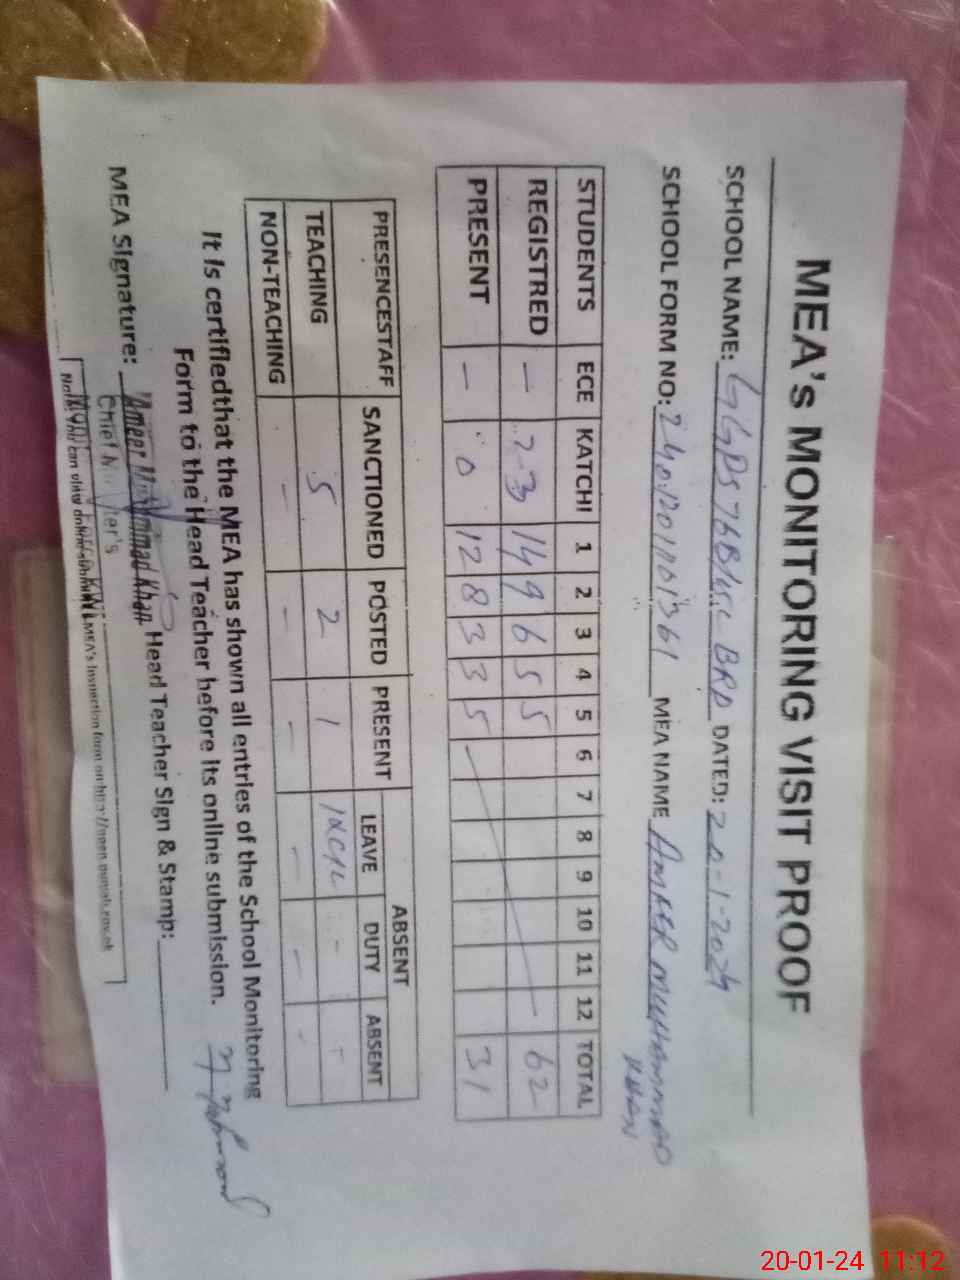 MEA's MONITORING VISIT PROOF
SCHOOL NAME: GGPS 76B/SC BRD DATED: 20-1-2024
SCHOOL FORM NO: MEA NAME AMEER MUHAMMAD
KHAN
STUDENTS ECE KATCHI 1 2 3 4 5 6 7 8 9 10 11 12 TOTAL
REGISTRED — 23 14 9 6 5 5 62
PRESENT — 0 12 8 3 3 5 31
PRESENCESTAFF SANCTIONED POSTED PRESENT ABSENT
LEAVE DUTY ABSENT
TEACHING 5 2 1 - -
NON-TEACHING - - - - - -
It is certifiedthat the MEA has shown all entries of the School Monitoring
Form to the Head Teacher before its online submission.
MEA Signature: Ameer Muhammad Khan Head Teacher Sign & Stamp:
Note: You can view MEA's Inspection form on http://open.punjab.gov.pk
20-01-24 11:12